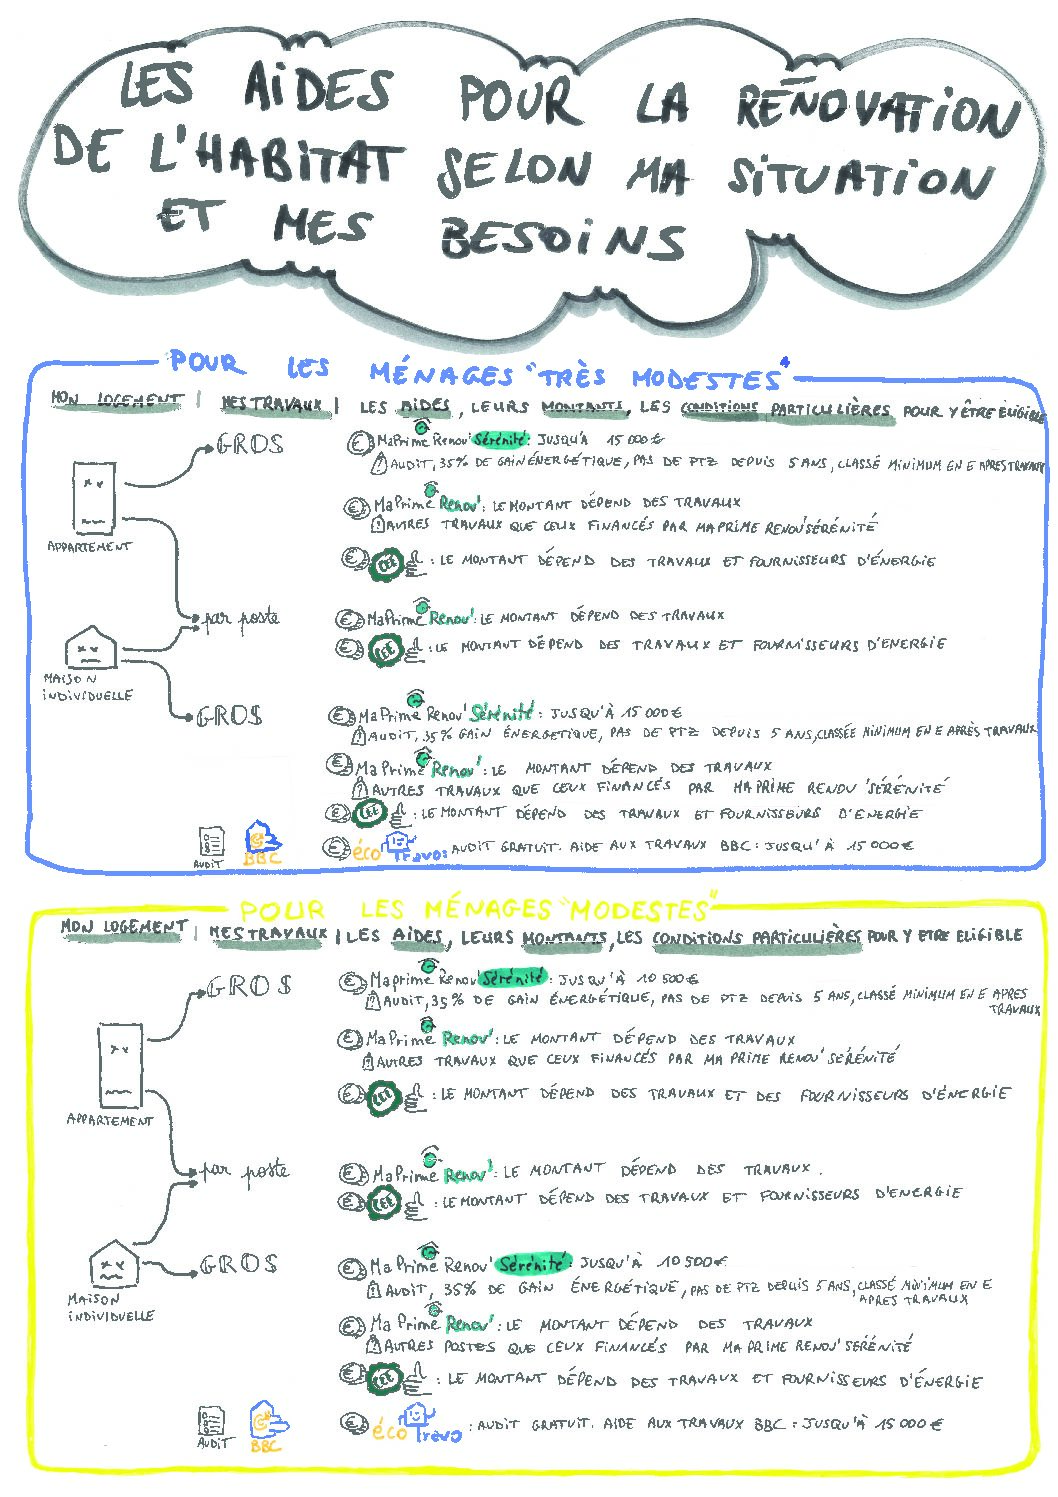 LES AiDES POUR LA RÉNOVATiON
DE L'HABiTAT SELON MA SiTUATiON
ET MES BESOiNS
POUR LES MÉNAGES "TRÈS MODESTES"
MON LOGEMENT | MES TRAVAUX | LES AIDES, LEURS MONTANTS, LES CONDITIONS PARTICULIÈRES POUR Y ÊTRE ÉLIGIBLE
GROS
€ MaPrimeRenov' Sérénité : JUSQU'À 15 000 €
AUDIT, 35% DE GAIN ÉNERGÉTIQUE, PAS DE PTZ DEPUIS 5 ANS, CLASSÉ MINIMUM EN E APRES TRAVAUX
€ MaPrime Renov' : LE MONTANT DÉPEND DES TRAVAUX
AUTRES TRAVAUX QUE CEUX FINANCÉS PAR MAPRIME RENOV'SÉRÉNITÉ
APPARTEMENT
€ CEE : LE MONTANT DÉPEND DES TRAVAUX ET FOURNISSEURS D'ÉNERGIE
par poste
€ MaPrime Renov' : LE MONTANT DÉPEND DES TRAVAUX
€ CEE : LE MONTANT DÉPEND DES TRAVAUX ET FOURNISSEURS D'ENERGIE
MAISON
INDIVIDUELLE
GROS
€ MaPrime Renov' Sérénité : JUSQU'À 15 000 €
AUDIT, 35% GAIN ÉNERGETIQUE, PAS DE PTZ DEPUIS 5 ANS, CLASSÉE MINIMUM EN E APRÈS TRAVAUX
€ MaPrime Renov' : LE MONTANT DÉPEND DES TRAVAUX
AUTRES TRAVAUX QUE CEUX FINANCÉS PAR MAPRIME RENOV'SÉRÉNITÉ
€ CEE : LE MONTANT DÉPEND DES TRAVAUX ET FOURNISSEURS D'ENERGIE
AUDIT BBC
€ éco Travo : AUDIT GRATUIT. AIDE AUX TRAVAUX BBC : JUSQU'À 15 000 €
POUR LES MÉNAGES "MODESTES"
MON LOGEMENT | MES TRAVAUX | LES AIDES, LEURS MONTANTS, LES CONDITIONS PARTICULIÈRES POUR Y ETRE ELIGIBLE
GROS
€ Maprime Renov' Sérénité : JUSQU'À 10 500 €
AUDIT, 35% DE GAIN ÉNERGÉTIQUE, PAS DE PTZ DEPUIS 5 ANS, CLASSÉ MINIMUM EN E APRES
TRAVAUX
€ MaPrime Renov' : LE MONTANT DÉPEND DES TRAVAUX
AUTRES TRAVAUX QUE CEUX FINANCÉS PAR MA PRIME RENOV' SÉRÉNITÉ
€ CEE : LE MONTANT DÉPEND DES TRAVAUX ET DES FOURNISSEURS D'ÉNERGIE
APPARTEMENT
par poste
€ MaPrime Renov' : LE MONTANT DÉPEND DES TRAVAUX.
€ CEE : LE MONTANT DÉPEND DES TRAVAUX ET FOURNISSEURS D'ENERGIE
GROS
€ MaPrime Renov' Sérénité : JUSQU'À 10 500 €
AUDIT, 35% DE GAIN ÉNERGÉTIQUE, PAS DE PTZ DEPUIS 5 ANS, CLASSÉ MINIMUM EN E
APRES TRAVAUX
MAISON
INDIVIDUELLE
€ MaPrime Renov' : LE MONTANT DÉPEND DES TRAVAUX
AUTRES POSTES QUE CEUX FINANCÉS PAR MAPRIME RENOV'SÉRÉNITÉ
€ CEE : LE MONTANT DÉPEND DES TRAVAUX ET FOURNISSEURS D'ÉNERGIE
AUDIT BBC
€ éco Travo : AUDIT GRATUIT. AIDE AUX TRAVAUX BBC : JUSQU'À 15 000 €